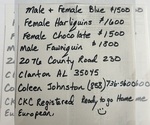 Male + Female Blue $1500
Female Harlequins $1600
Female Chocolate $1500
Male Fawniquin $1800
2076 County Road 230
Clanton AL 35045
Coleen Johnston
CKC Registered Ready to go Home
European